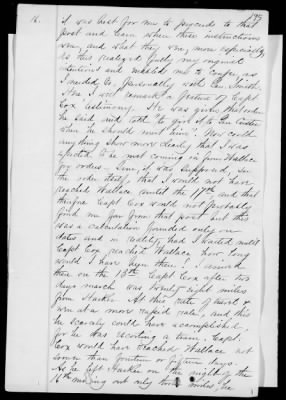 16.
195
it was best for me to proceed to that
post and learn where these instructions
were, and what they were, more especially,
as this realized fully my original
intentions and enabled me to confer, as
I needed to, personally with Gen. Smith.
Now I will remark a feature of Capt
Cox testimony. He was given this order
he said and told "to give it to Gen Custer
when he should meet him". Now could
anything show more clearly that I was
expected to be met coming in from Wallace
for orders. True, it was supposed, in
the order itself, that I would not have
reached Wallace until the 17th, and that
therefore Capt Cox would not probably
find me far from that post but this
was a calculation founded only on
dates and in reality, had I waited until
Capt Cox reached Wallace how long
would I have been there. I arrived
there on the 13th Capt Cox after two
days march was twenty eight miles
from Harker. At this rate of travel &
even at a more rapid rate, and this
he scarcely could have accomplished,
for he was escorting a train. Capt.
Cox would have reached Wallace not
sooner than fourteen or fifteen days.
As he left Harker on the night of the
16th making out only three miles, he